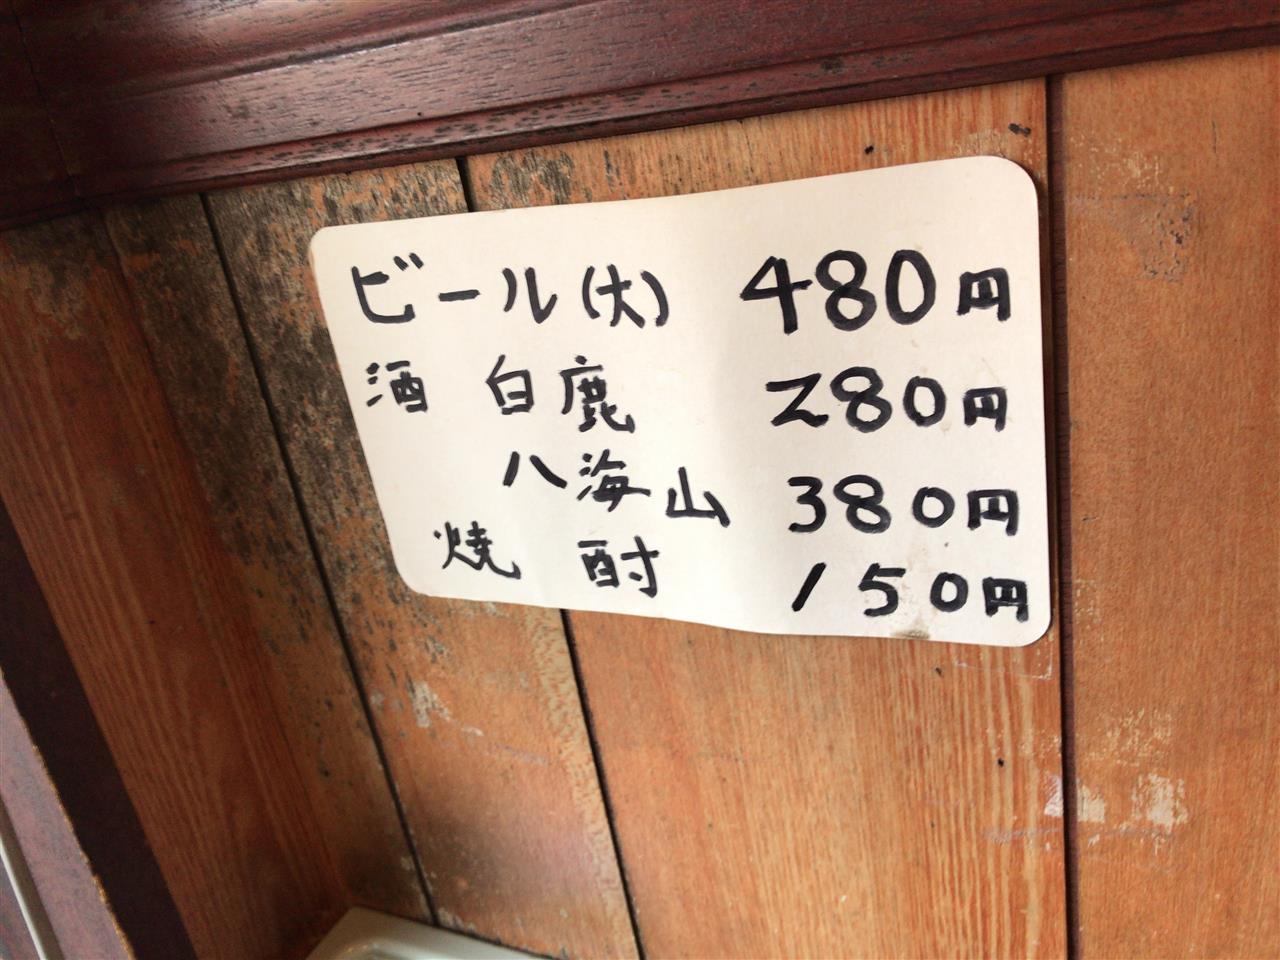 ビール(大) 480円
酒 白鹿 280円
八海山 380円
焼酎 150円